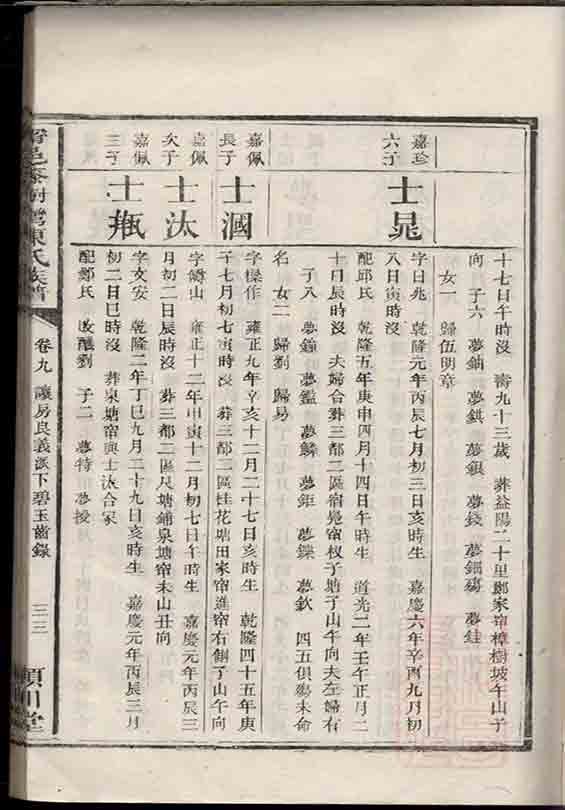 十七日午時沒 壽九十三歲 葬益陽二十里鄭家帘樟樹坡午山子
向 子六 夢鏑 夢錤 夢銀 夢錢 夢鈿殤 夢銈
女一 歸伍明章
嘉珍六子
士晁
字日兆 乾隆元年丙辰七月初三日亥時生 嘉慶六年辛酉九月初
八日寅時沒
配邱氏 乾隆五年庚申四月十四日午時生 道光二年壬午正月二
十日辰時沒 夫婦合葬三都二區宿覓帘杈子塘子山午向夫左婦有
子八 夢鐘 夢鑑 夢鏻 夢鉅 夢鏁 夢欽 四五俱殤未命
名 女二 歸劉 歸易
嘉佩長子
士漍
字操作 雍正九年辛亥十二月二十七日亥時生 乾隆四十五年庚
子七月初七寅時沒 葬三都二區桂花塘田家帘進帘右側子山午向
嘉佩次子
士汰
字鱄山 雍正十二年甲寅十二月初七日午時生 嘉慶元年丙辰三
月初二日辰時沒 葬三都二區尺塘鋪泉塘帘未山丑向
嘉佩三子
士㼛
字文安 乾隆二年丁巳九月二十九日亥時生 嘉慶元年丙辰三月
初二日巳時沒 葬泉塘帘與士汰合冢
配鄭氏 改醮劉 子二 夢特 夢授
邑 樹灣陳氏族譜
卷九 讓房良義派下碧玉齒錄
三三
潁川堂